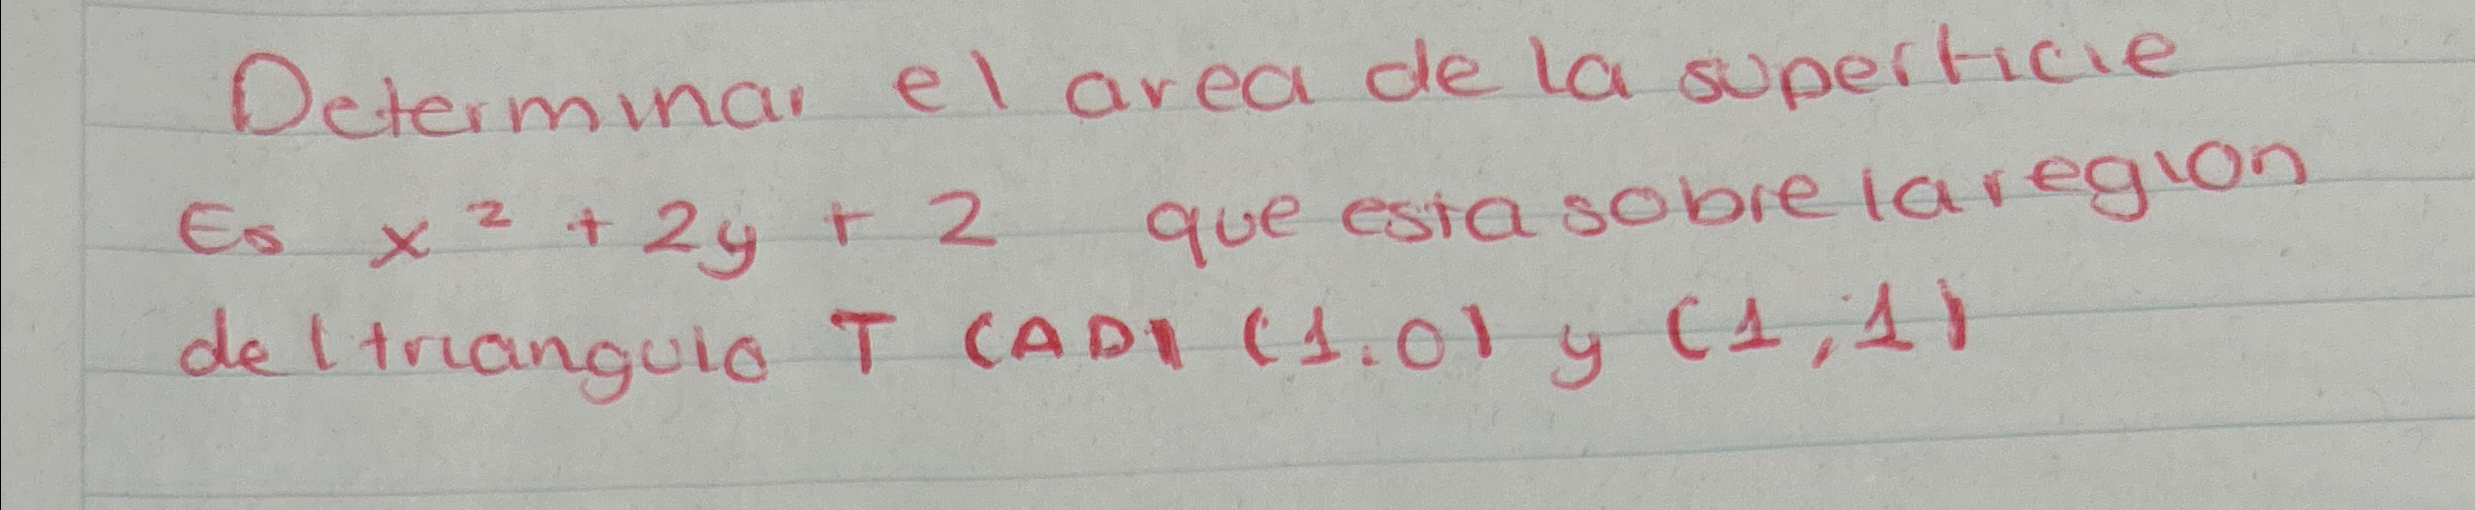 Determinar el area de la superficie
Es x² + 2y + 2 que esta sobre la region
del triangulo T (AD) (1.0) y (1,1)